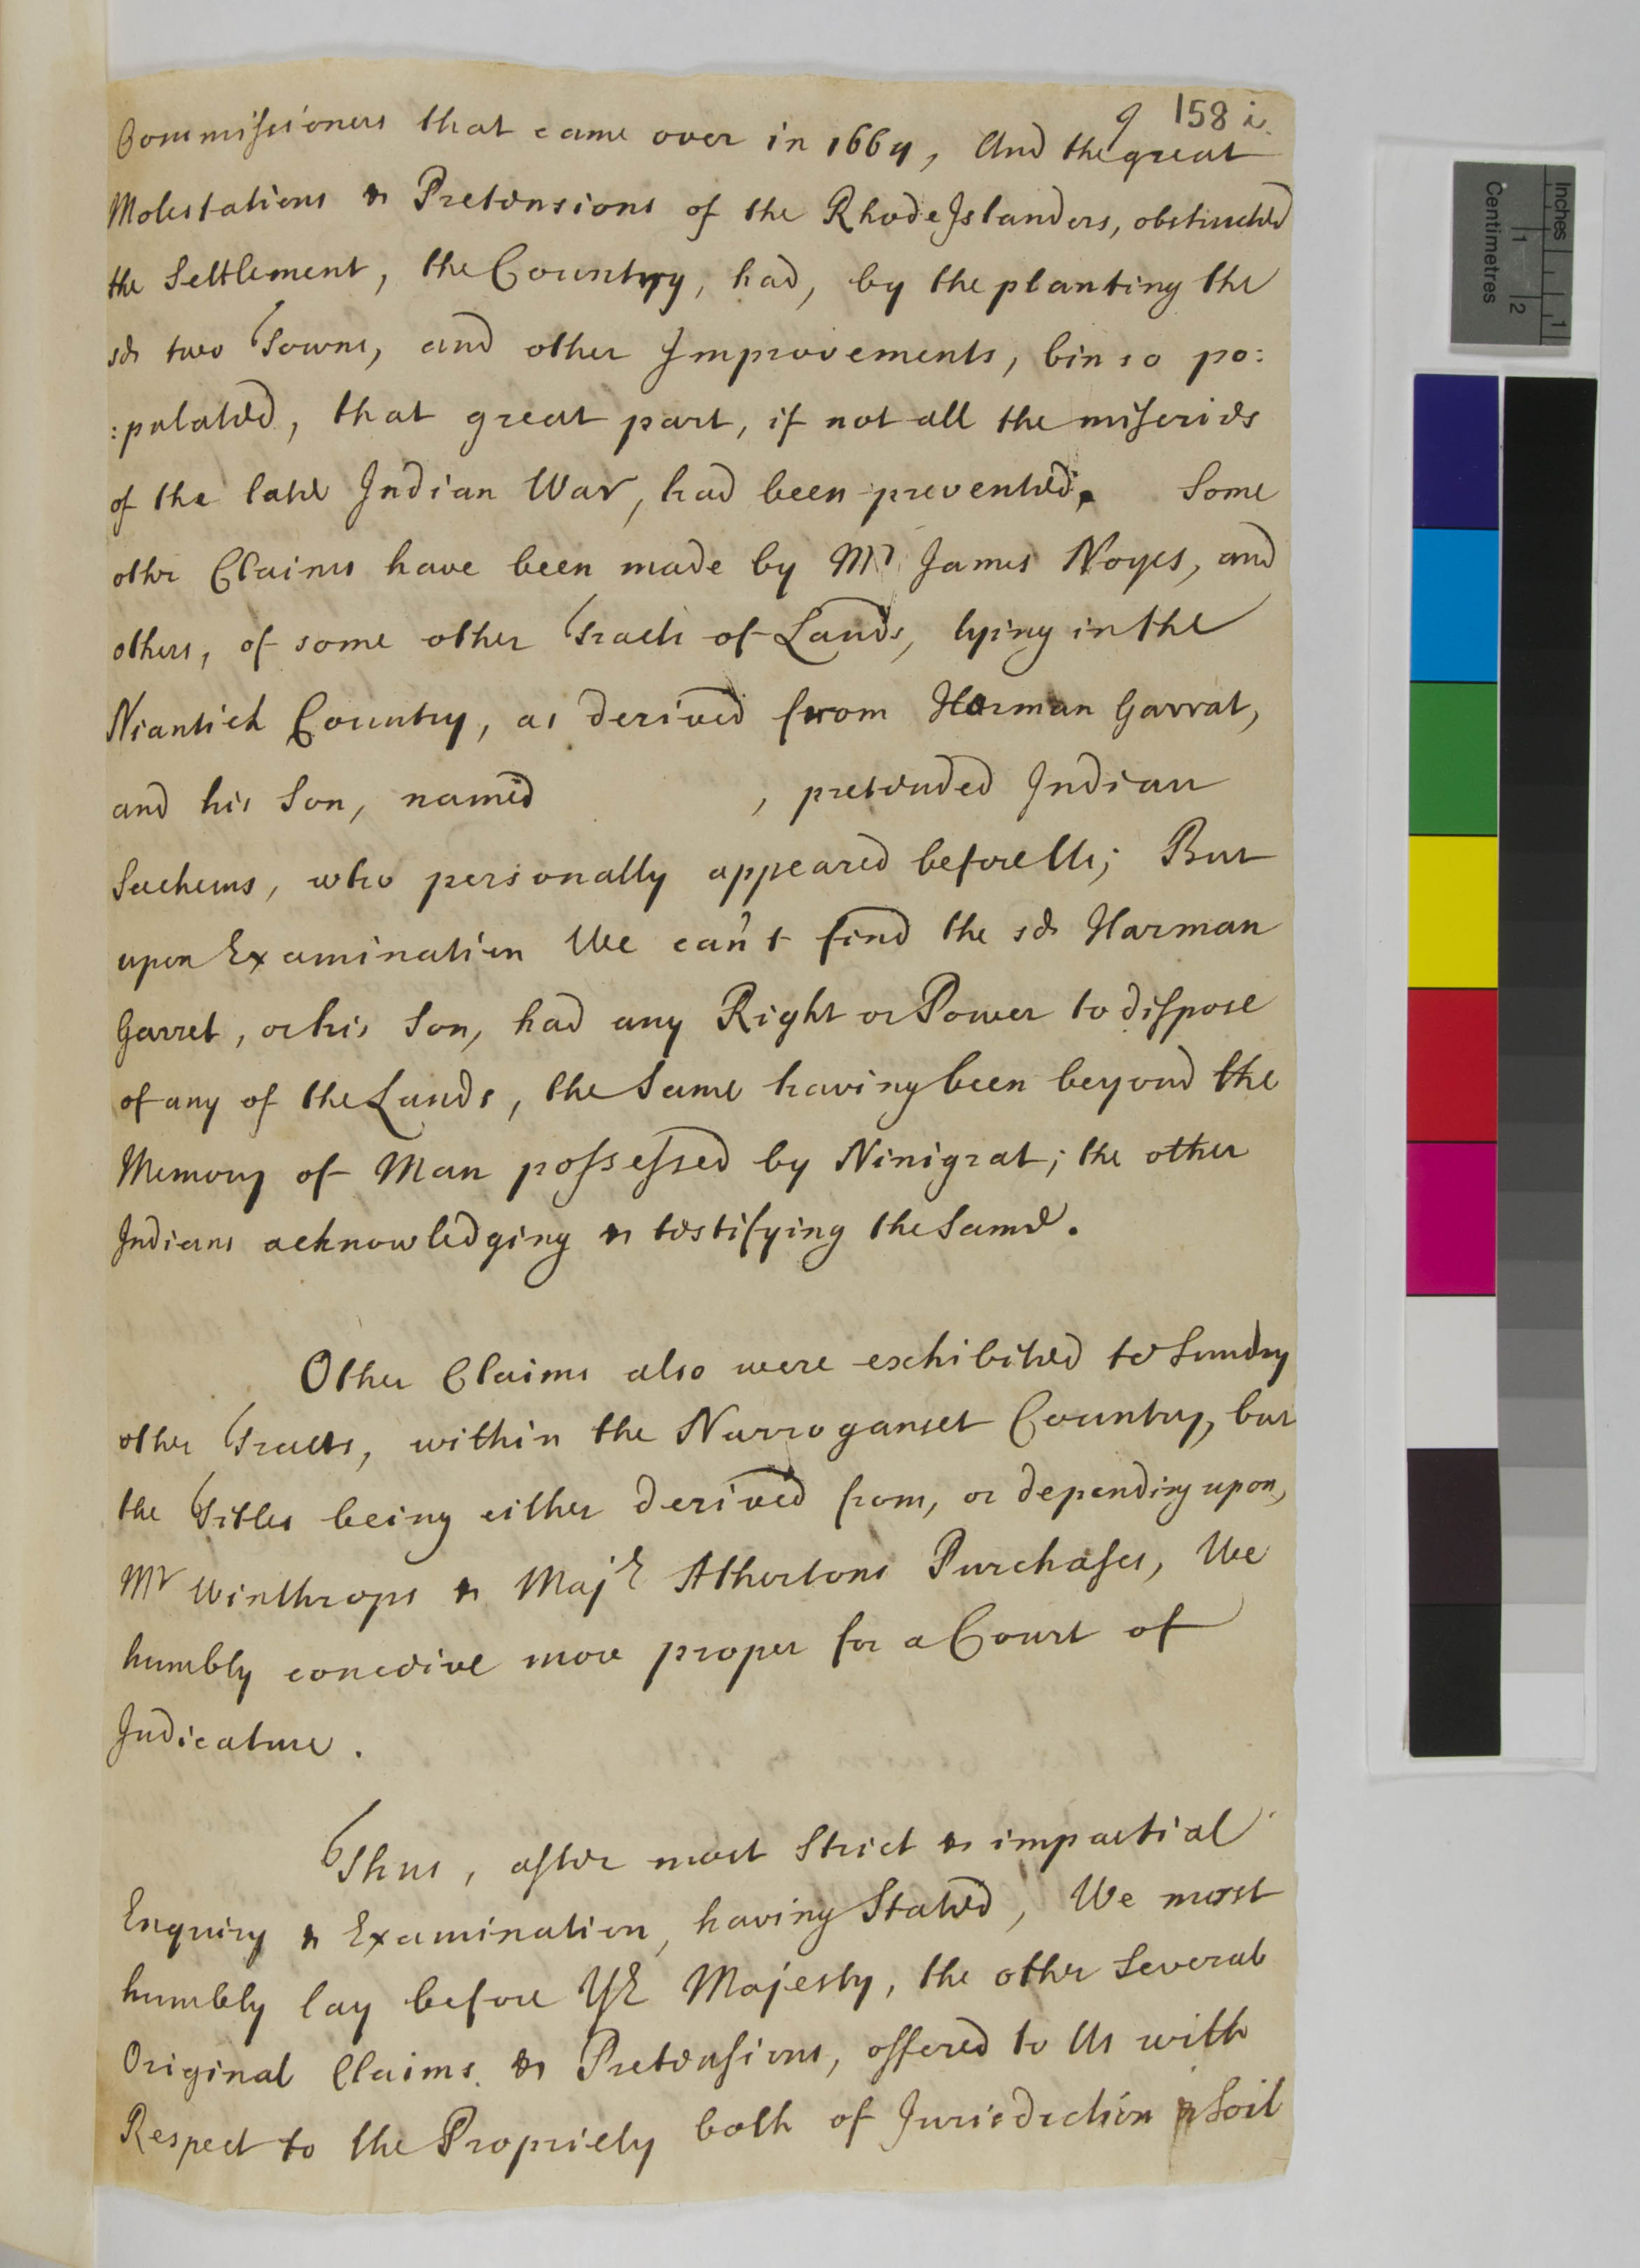 9 158 i.
Commissioners that came over in 1664, And the great
Molestations & Pretensions of the Rhode Islanders, obstructed
the Settlement, the Country, had, by the planting the
sd two Towns, and other Improvements, bin so po:
:pulated, that great part, if not all the miseries
of the late Indian War, had been prevented. Some
other Claims have been made by Mr James Noyes, and
others, of some other Tracts of Lands, lying in the
Niantick Country, as derived from Harman Garrat,
and his Son, named , pretended Indian
Sachems, who personally appeared before Us; But
upon Examination We can't find the sd Harman
Garret, or his Son, had any Right or Power to dispose
of any of the Lands, the Same having been beyond the
Memory of Man possessed by Ninigrat; the other
Indians acknowledging & testifying the Same.
Other Claims also were exhibited to Sundry
other Tracts, within the Narroganset Country, but
the Titles being either derived from, or depending upon,
Mr Winthrops & Majr Athertons Purchases, We
humbly conceive more proper for a Court of
Judicature.
Thus, after most Strict & impartial
Enquiry & Examination, having Stated, We most
humbly lay before Yr Majesty, the other Several
Original Claims & Pretensions, offered to Us with
Respect to the Propriety both of Jurisdiction & Soil
Inches
1
Centimetres
1 2